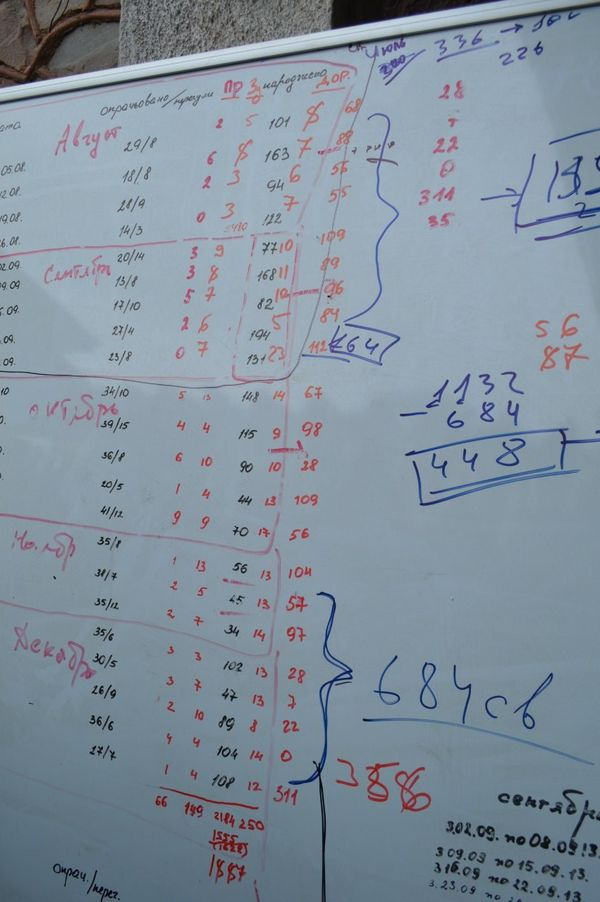 ата опрачьовано/прегули Пр З народжено ДОР.
Июль 336
226
Август
29/8 2 5 101 8 68
05.08. 18/8 6 8 163 7 88
12.08. 28/9 2 3 94 6 56
19.08. 14/3 0 3 122 7 55
26.08.
Сентябрь
02.09. 20/14 3 9 77 10 109
09.09. 13/8 3 8 168 11 89
17/10 5 7 82 10 96
27/4 2 6 194 5 84
23/8 0 7 131 23 112
164
октябрь
34/10 5 13 148 14 67
39/15 4 4 115 9 98
36/8 6 10 90 10 28
20/5 1 4 44 13 109
41/12 9 9 70 17 56
Ноябр
35/8 1 13 56 13 104
38/7 2 5 45 13 57
35/12 2 7 34 14 97
Декабрь
35/6 3 3 102 13 28
30/5 3 7 47 13 7
26/9 2 10 89 8 22
36/6 4 4 104 14 0
27/7 1 4 108 12 311
66 149 2184 250
1887
опрач./перег.
28
22
0
311
35
56
87
1132
- 684
448
684св
сентябрь
3.02.09. по 08.09.13.
3 09.09 по 15.09.13.
3 16.09 по 22.09.13
3.23.09